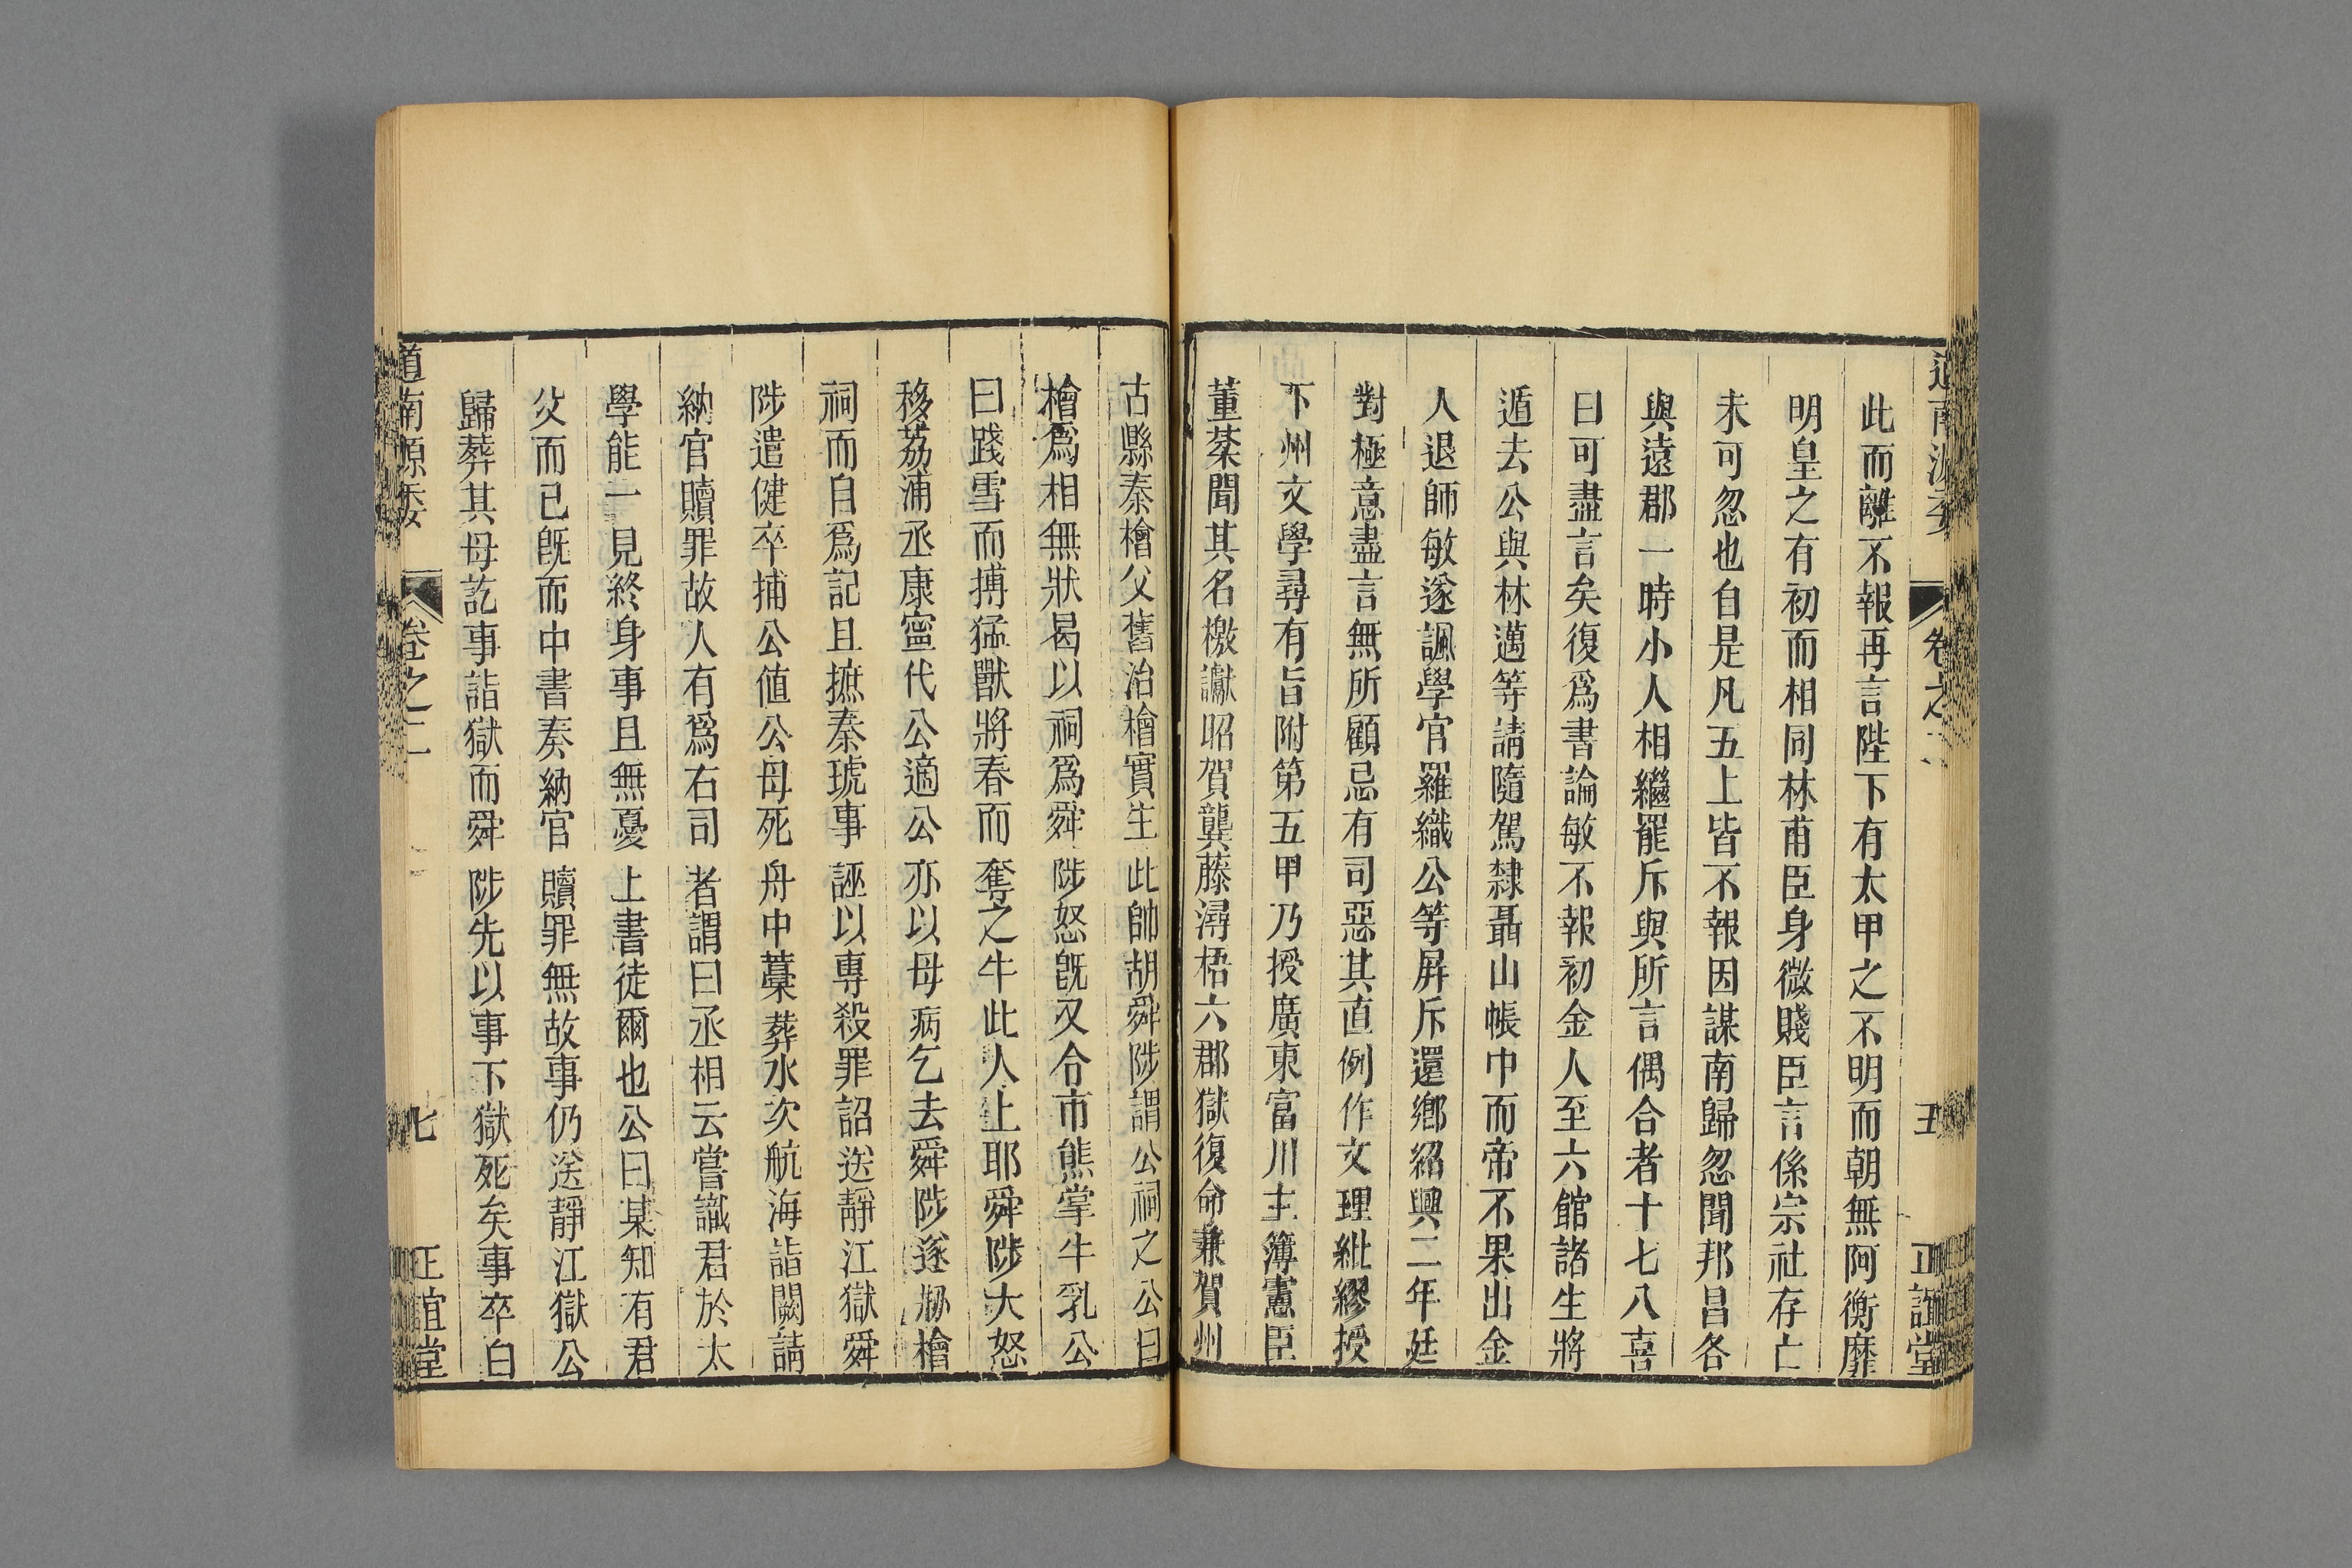 道南源委 卷之二 五 正誼堂
此而離不報再言陛下有太甲之不明而朝無阿衡靡
明皇之有初而相同林甫臣身微賤臣言係宗社存亡
未可忽也自是凡五上皆不報因謀南歸忽聞邦昌各
與遠郡一時小人相繼罷斥與所言偶合者十七八喜
曰可盡言矣復爲書論敏不報初金人至六館諸生將
遁去公與林邁等請隨駕隸聶山帳中而帝不果出金
人退師敏遂諷學官羅織公等屏斥還鄉紹興二年廷
對極意盡言無所顧忌有司惡其直例作文理紕繆授
下州文學尋有旨附第五甲乃授廣東富川主簿憲臣
董棻聞其名檄讞昭賀龔藤潯梧六郡獄復命兼賀州
古縣秦檜父舊治檜實生此帥胡舜陟謂公祠之公曰
檜爲相無狀曷以祠爲舜陟怒旣又合市熊掌牛乳公
曰踐雪而搏猛獸將春而奪之牛此人上耶舜陟大怒
移荔浦丞康寧代公適公亦以母病乞去舜陟遂剙檜
祠而自爲記且摭秦琥事誣以專殺罪詔送靜江獄舜
陟遣健卒捕公値公母死舟中藁葬水次航海詣闕請
納官贖罪故人有爲右司者謂曰丞相云嘗識君於太
學能一見終身事且無憂上書徒爾也公曰某知有君
父而已旣而中書奏納官贖罪無故事仍送靜江獄公
歸葬其母訖事詣獄而舜陟先以事下獄死矣事卒白
道南源委 卷之二 七 正誼堂